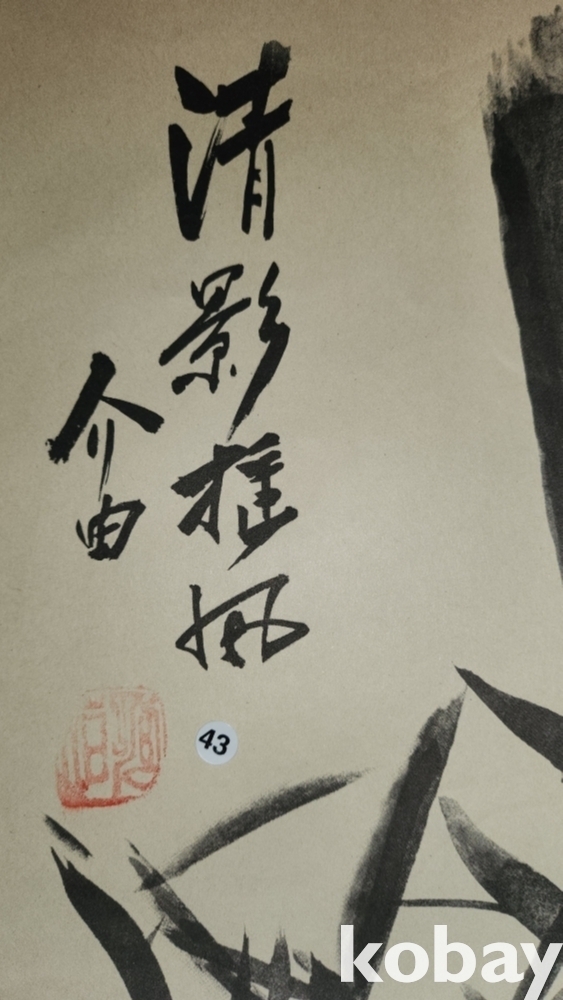 清影搖風
介由
43
kobay